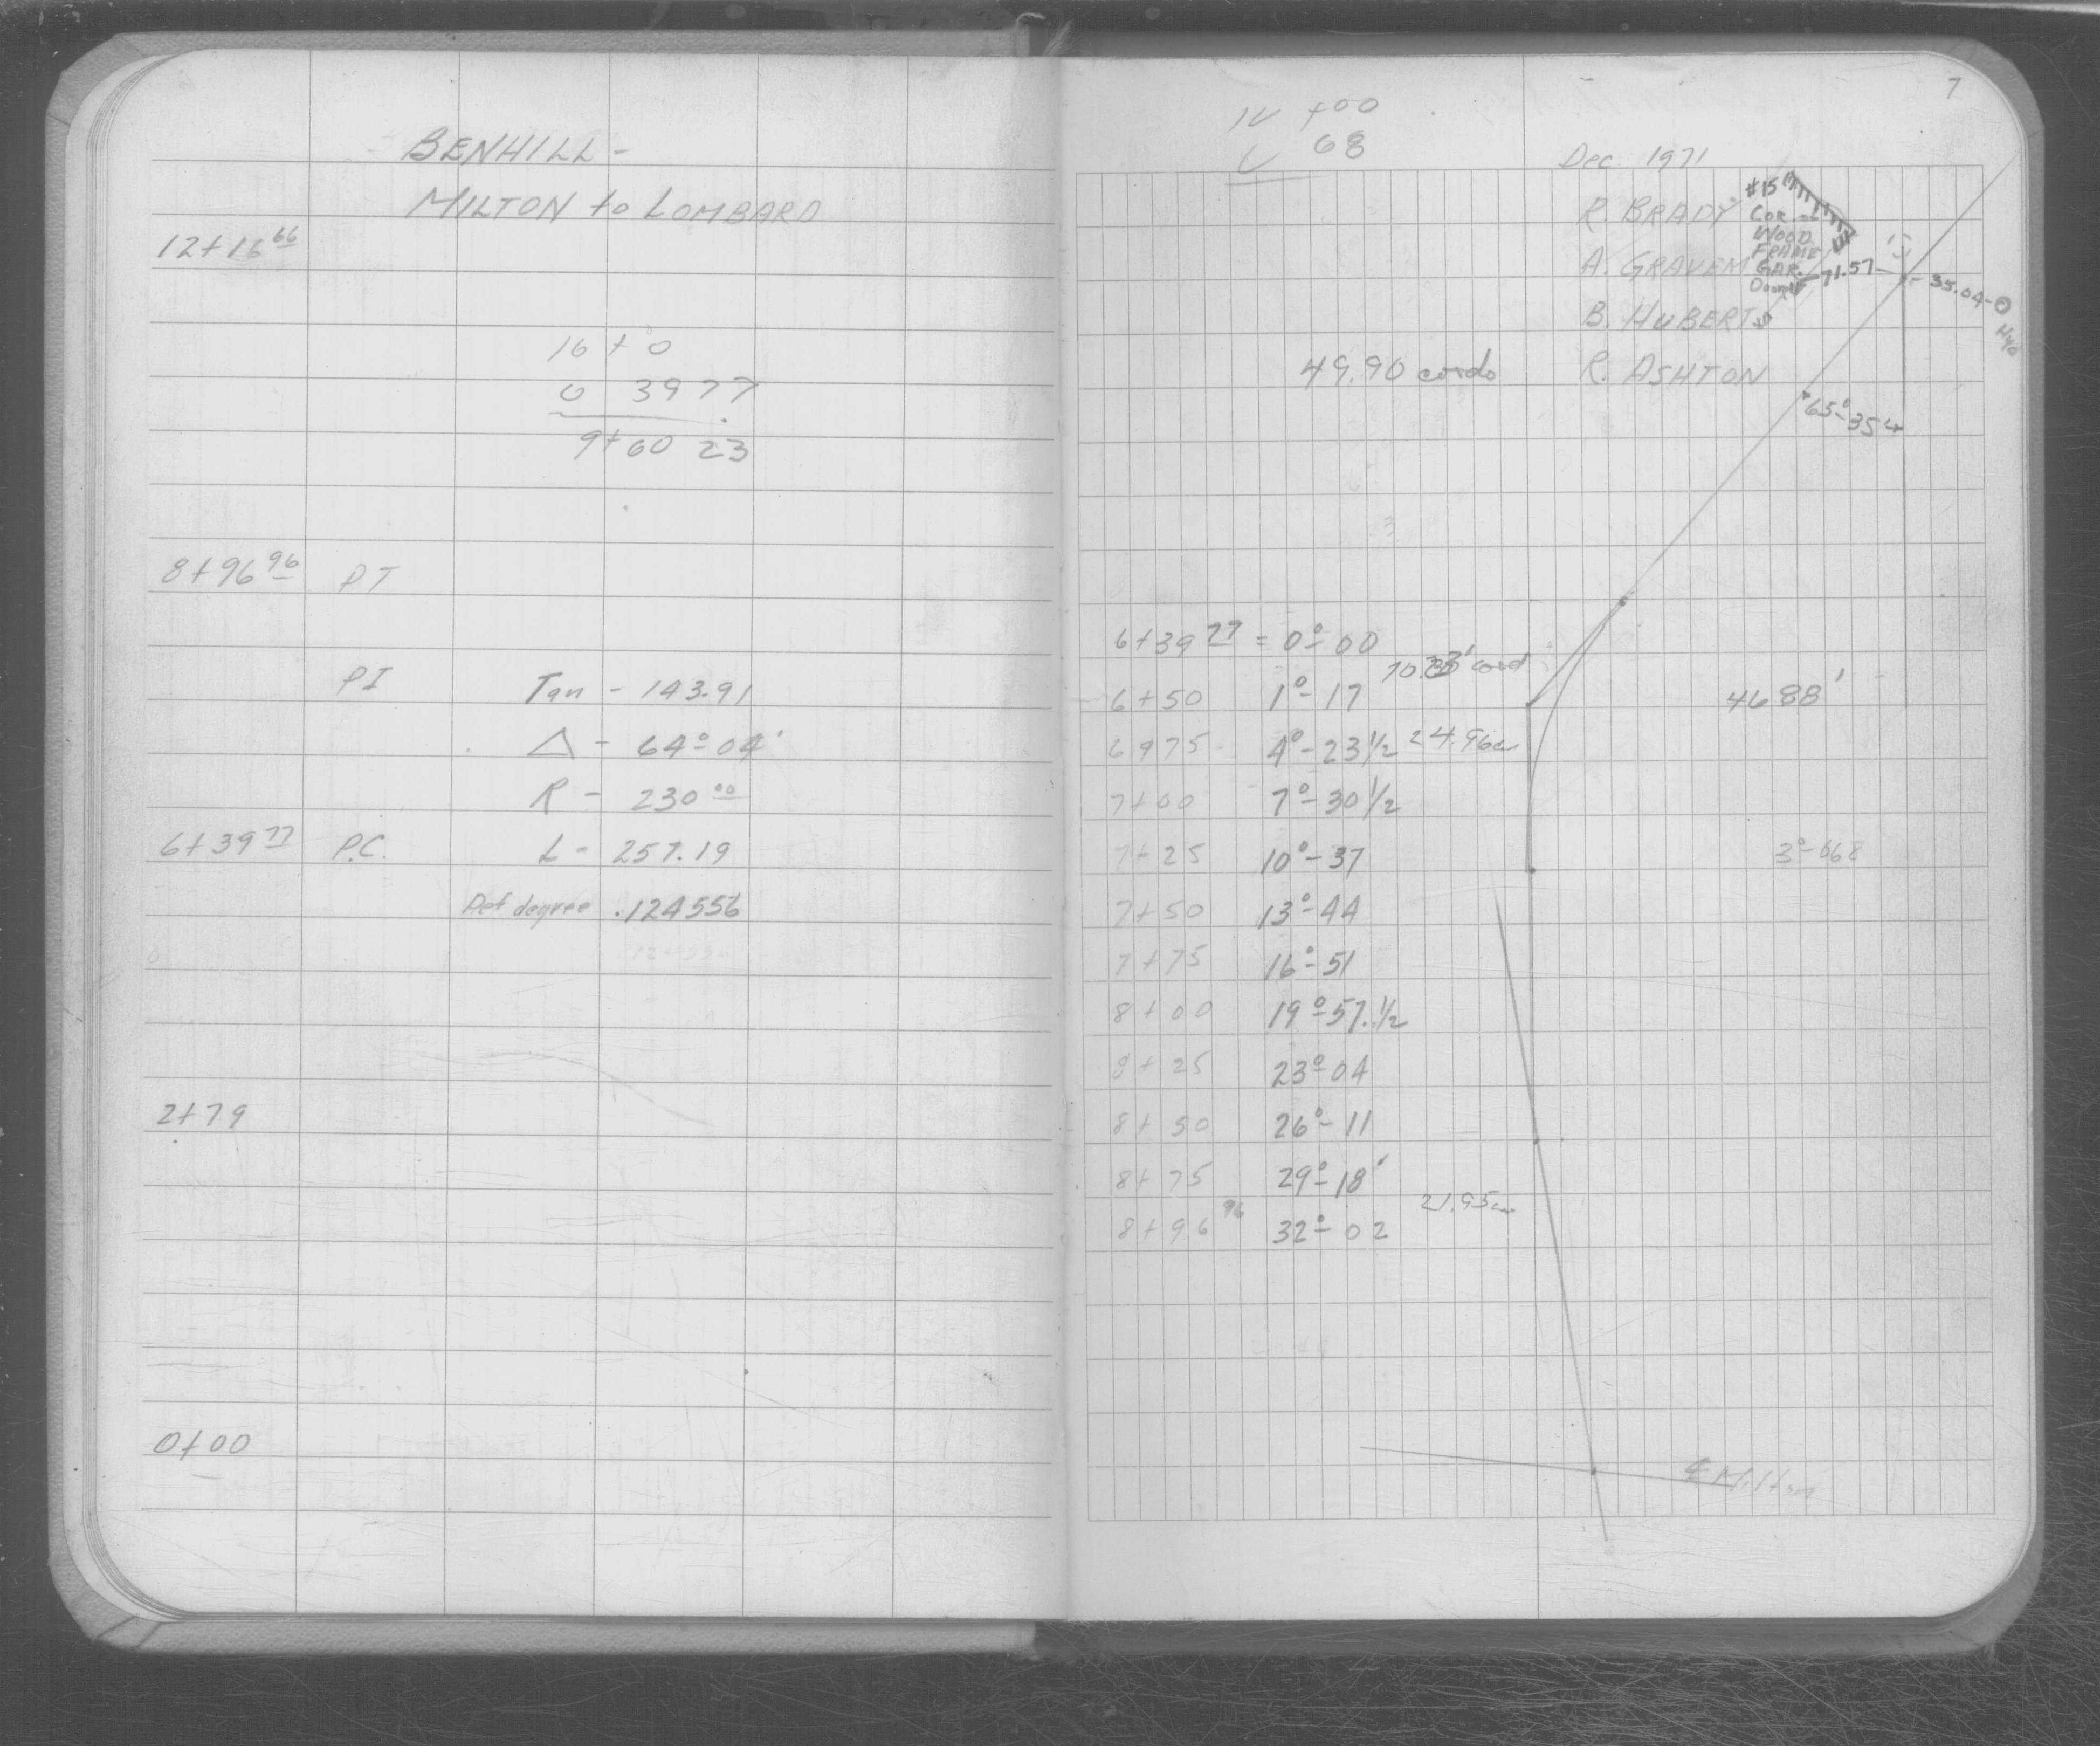 BENHILL -
MILTON to LOMBARD
12+16 66
16 + 0
0 3977
9+60 23
8+96 96 PT
PI Tan - 143.91
△ - 64°-04'
R - 230 00
6+39 77 P.C. L - 257.19
Def degree .124556
2+79
0+00
7
+00
68
Dec 1971
R. BRADY
A. GRAVEM
B. HUBERT
R. ASHTON
#15
COR. of
WOOD
FRAME
GAR.
71.57
35.04
49.90 cords
65°-35
6+39 77 = 0°-00
cord
6+50 1°-17
4688'
6+75 4°-23 1/2 24.96
7+00 7°-30 1/2
7+25 10°-37
3°-668
7+50 13°-44
7+75 16°-51
8+00 19°-57.1/2
8+25 23°-04
8+50 26°-11
8+75 29°-18'
21.95
8+96 96 32°-02
℄ Milton